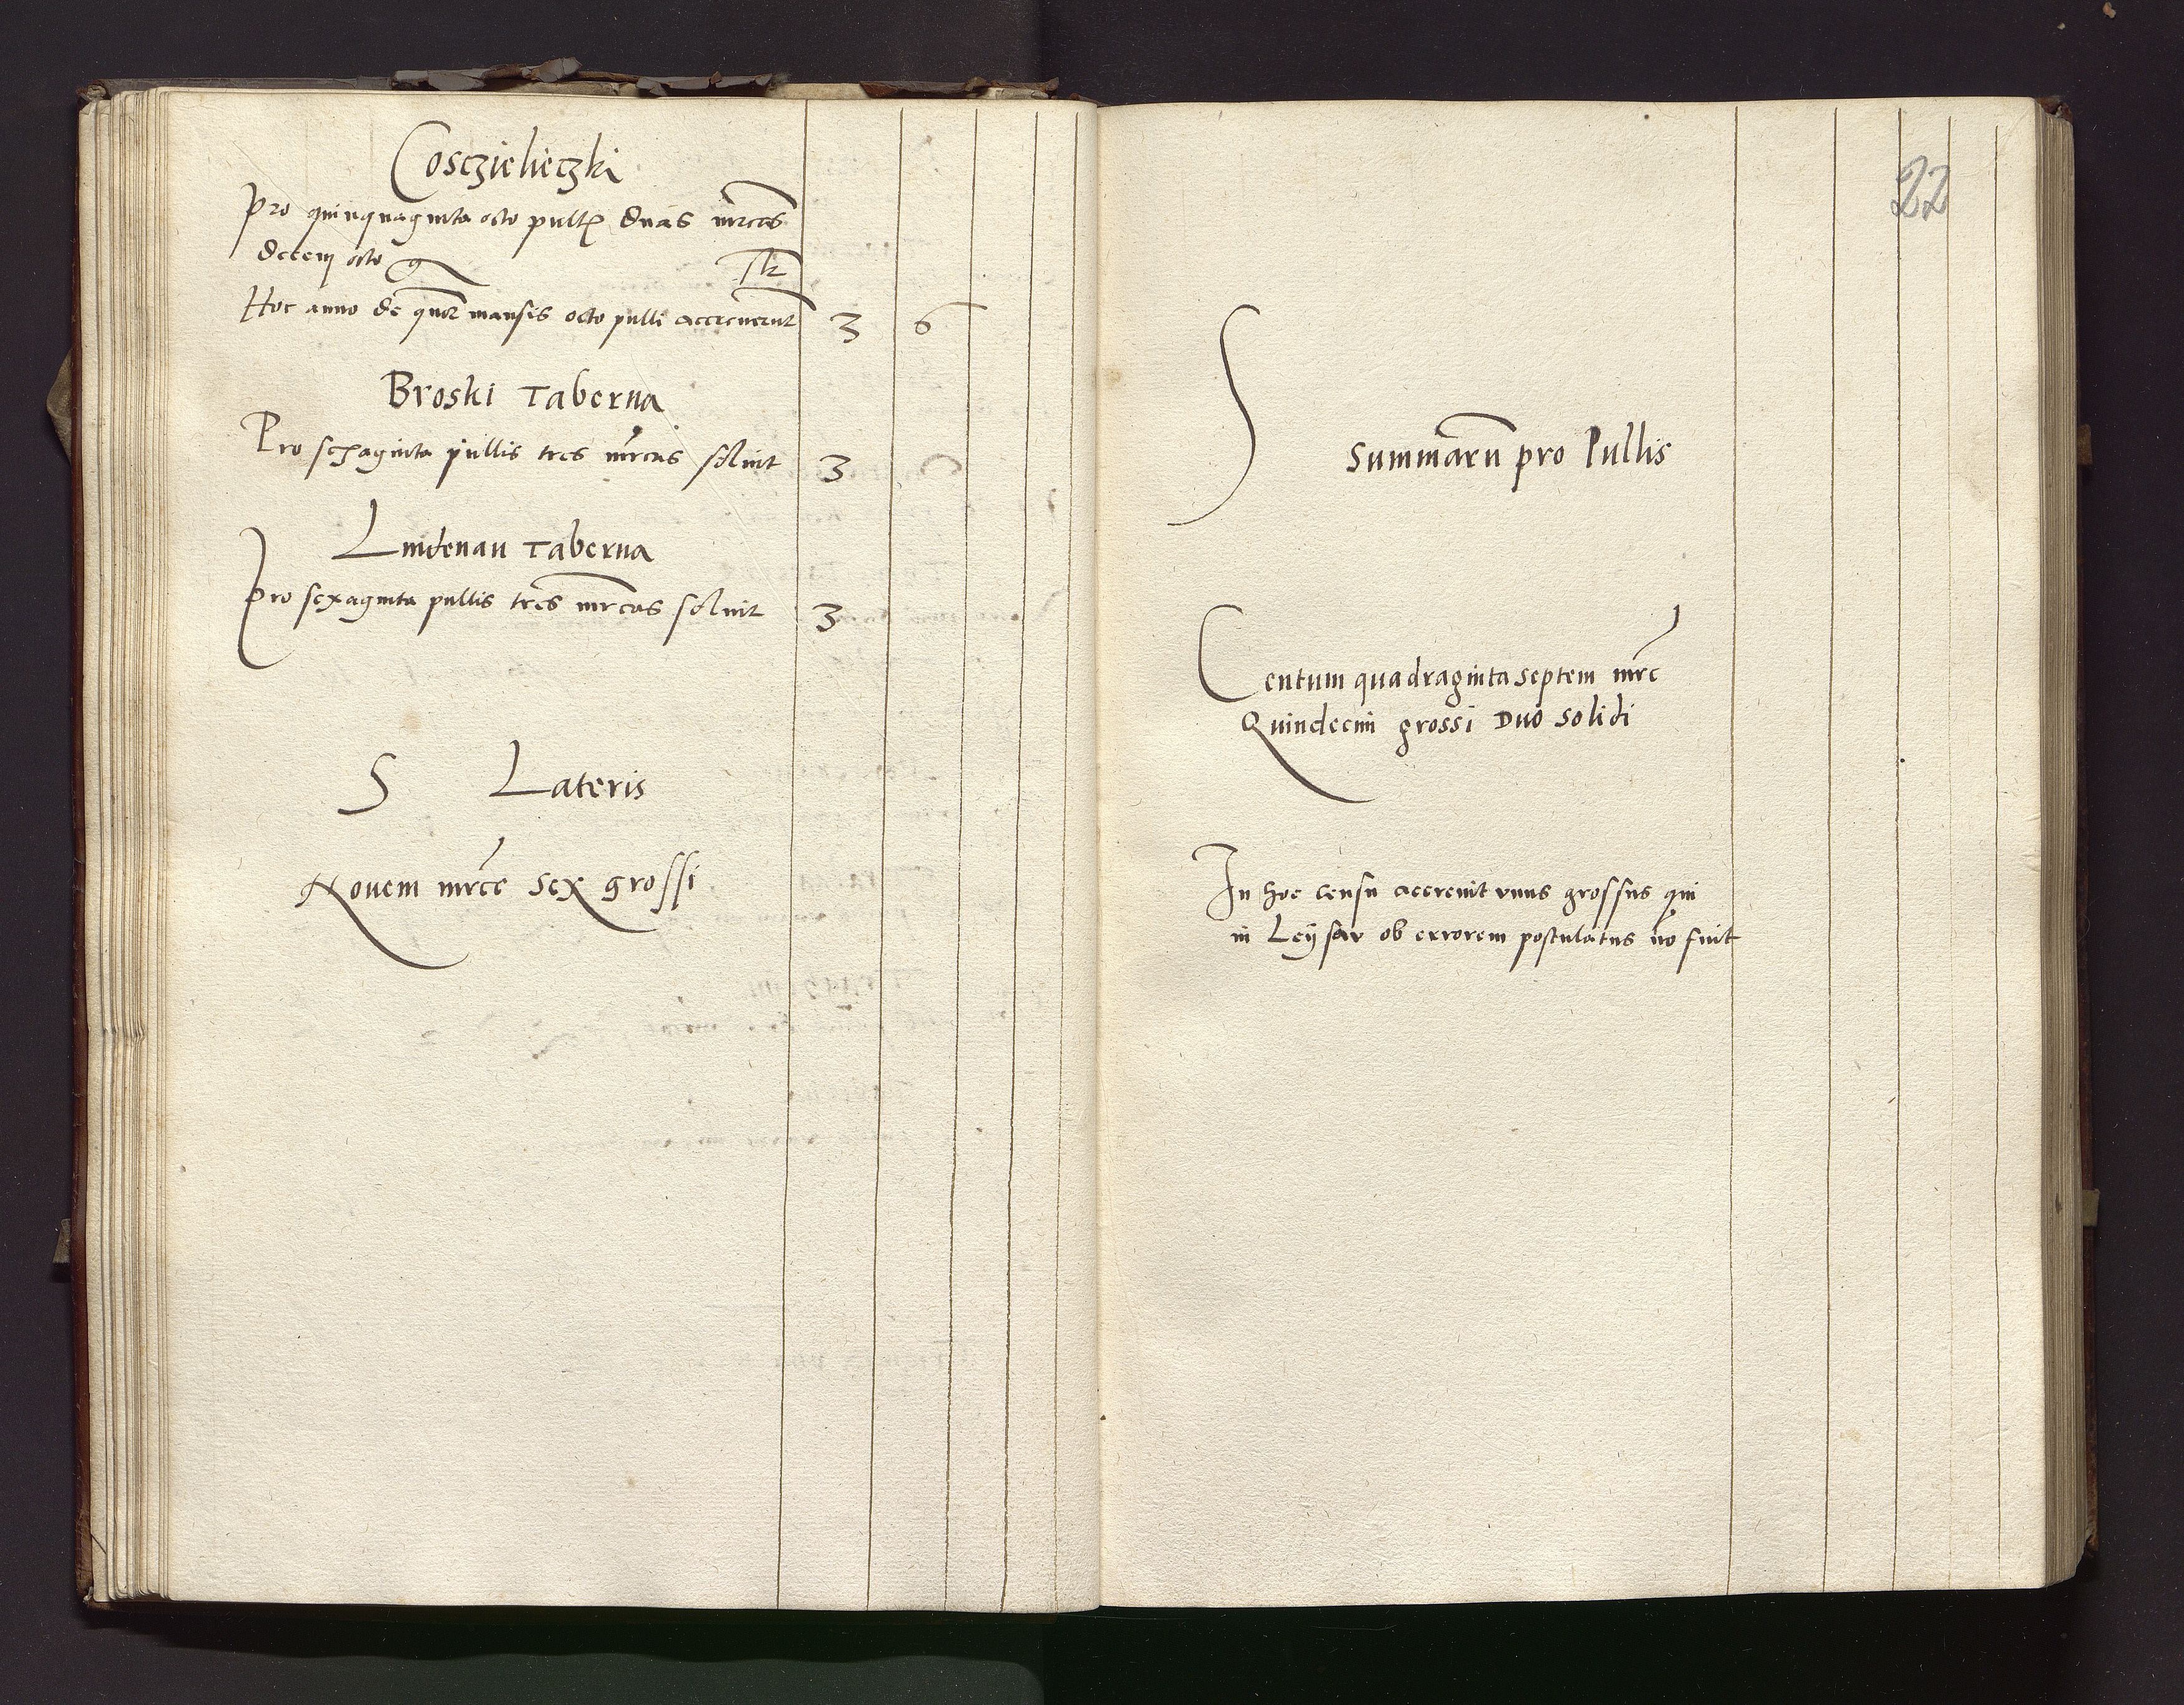 Cosczieliczki
Pro quinquaginta octo pull duas mrcas
decem octo g
Hoc anno de quor mansis octo pulli accreuerut 3 6
Broski Taberna
Pro sexaginta pullis tres mrcas soluit 3
Lindenau Taberna
Pro sexaginta pullis tres mrcas soluit 3
S Lateris
Nouem mrce sex grossi
22
S
Summaru pro Pullis
Centum quadraginta septem mrc
Quindecim grossi Duo solidi
In hoc censu accreuit vnus grossus qui
in Leysav ob errorem postulatus no fuit